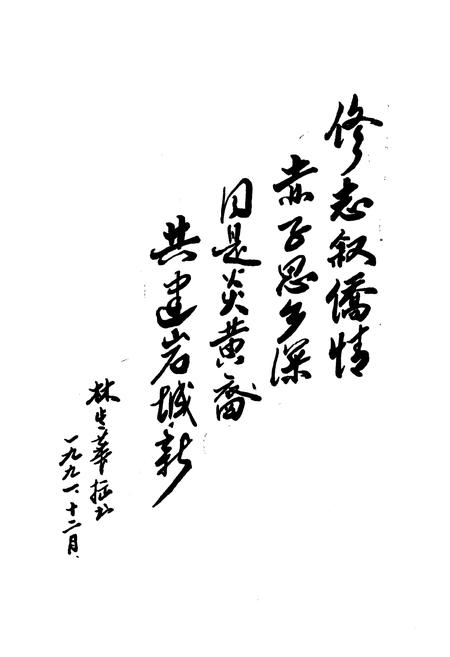 修志叙僑情
赤子思乡深
同是炎黄裔
共建岩城新
林生華拙书
一九九一、十二月、